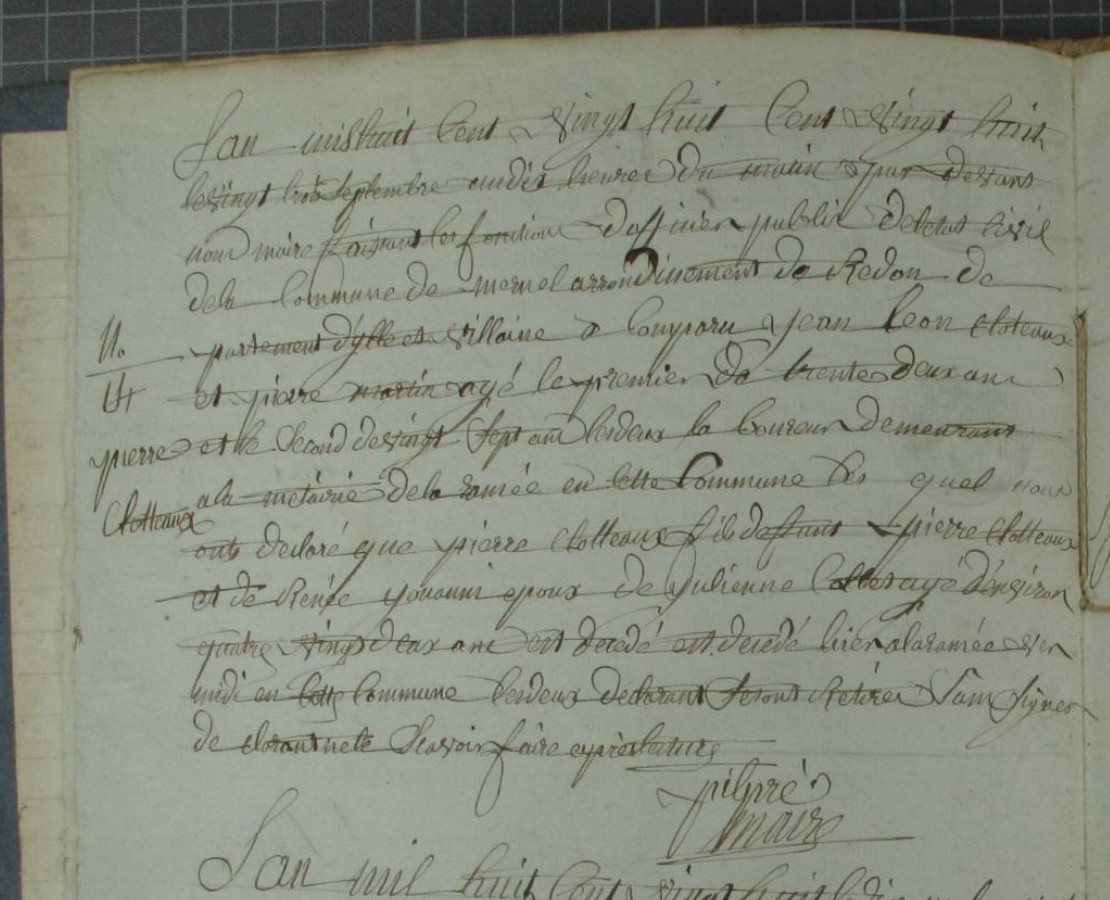 Lan mil huit Cent Vingt huit Cent Vingt huit
le Vingt trois Septembre au dix heures Du matin par Devans
nous maire faisant les fonctions Dofficier public De letat Civil
de la Commune de mernel arrondissement de Redon de
N. partement Dylle et Villaine a Comparu Jean Leon Cloteaux
14 et pierre martin agé le premier De trente Deux ans
pierre et le Second de Vingt Sept ans les deux la boureur Demeurant
Clotteaux a la metairie De la ramée en Cette Commune les quel nous
onts declaré que pierre Clotteaux fils deffunt pierre Clotteaux
et de Renée youanni epoux de Julienne agé Denviron
quatre Vingt deux ans est decedé est decedé hier a la ramée Ver
midi en Cette Commune les deux declarant Seront Retirer Sans Signer
de clorant ne le Scavoir faire apres lecture
pilpré
maire
Lan mil huit Cent Vingt huit le dix